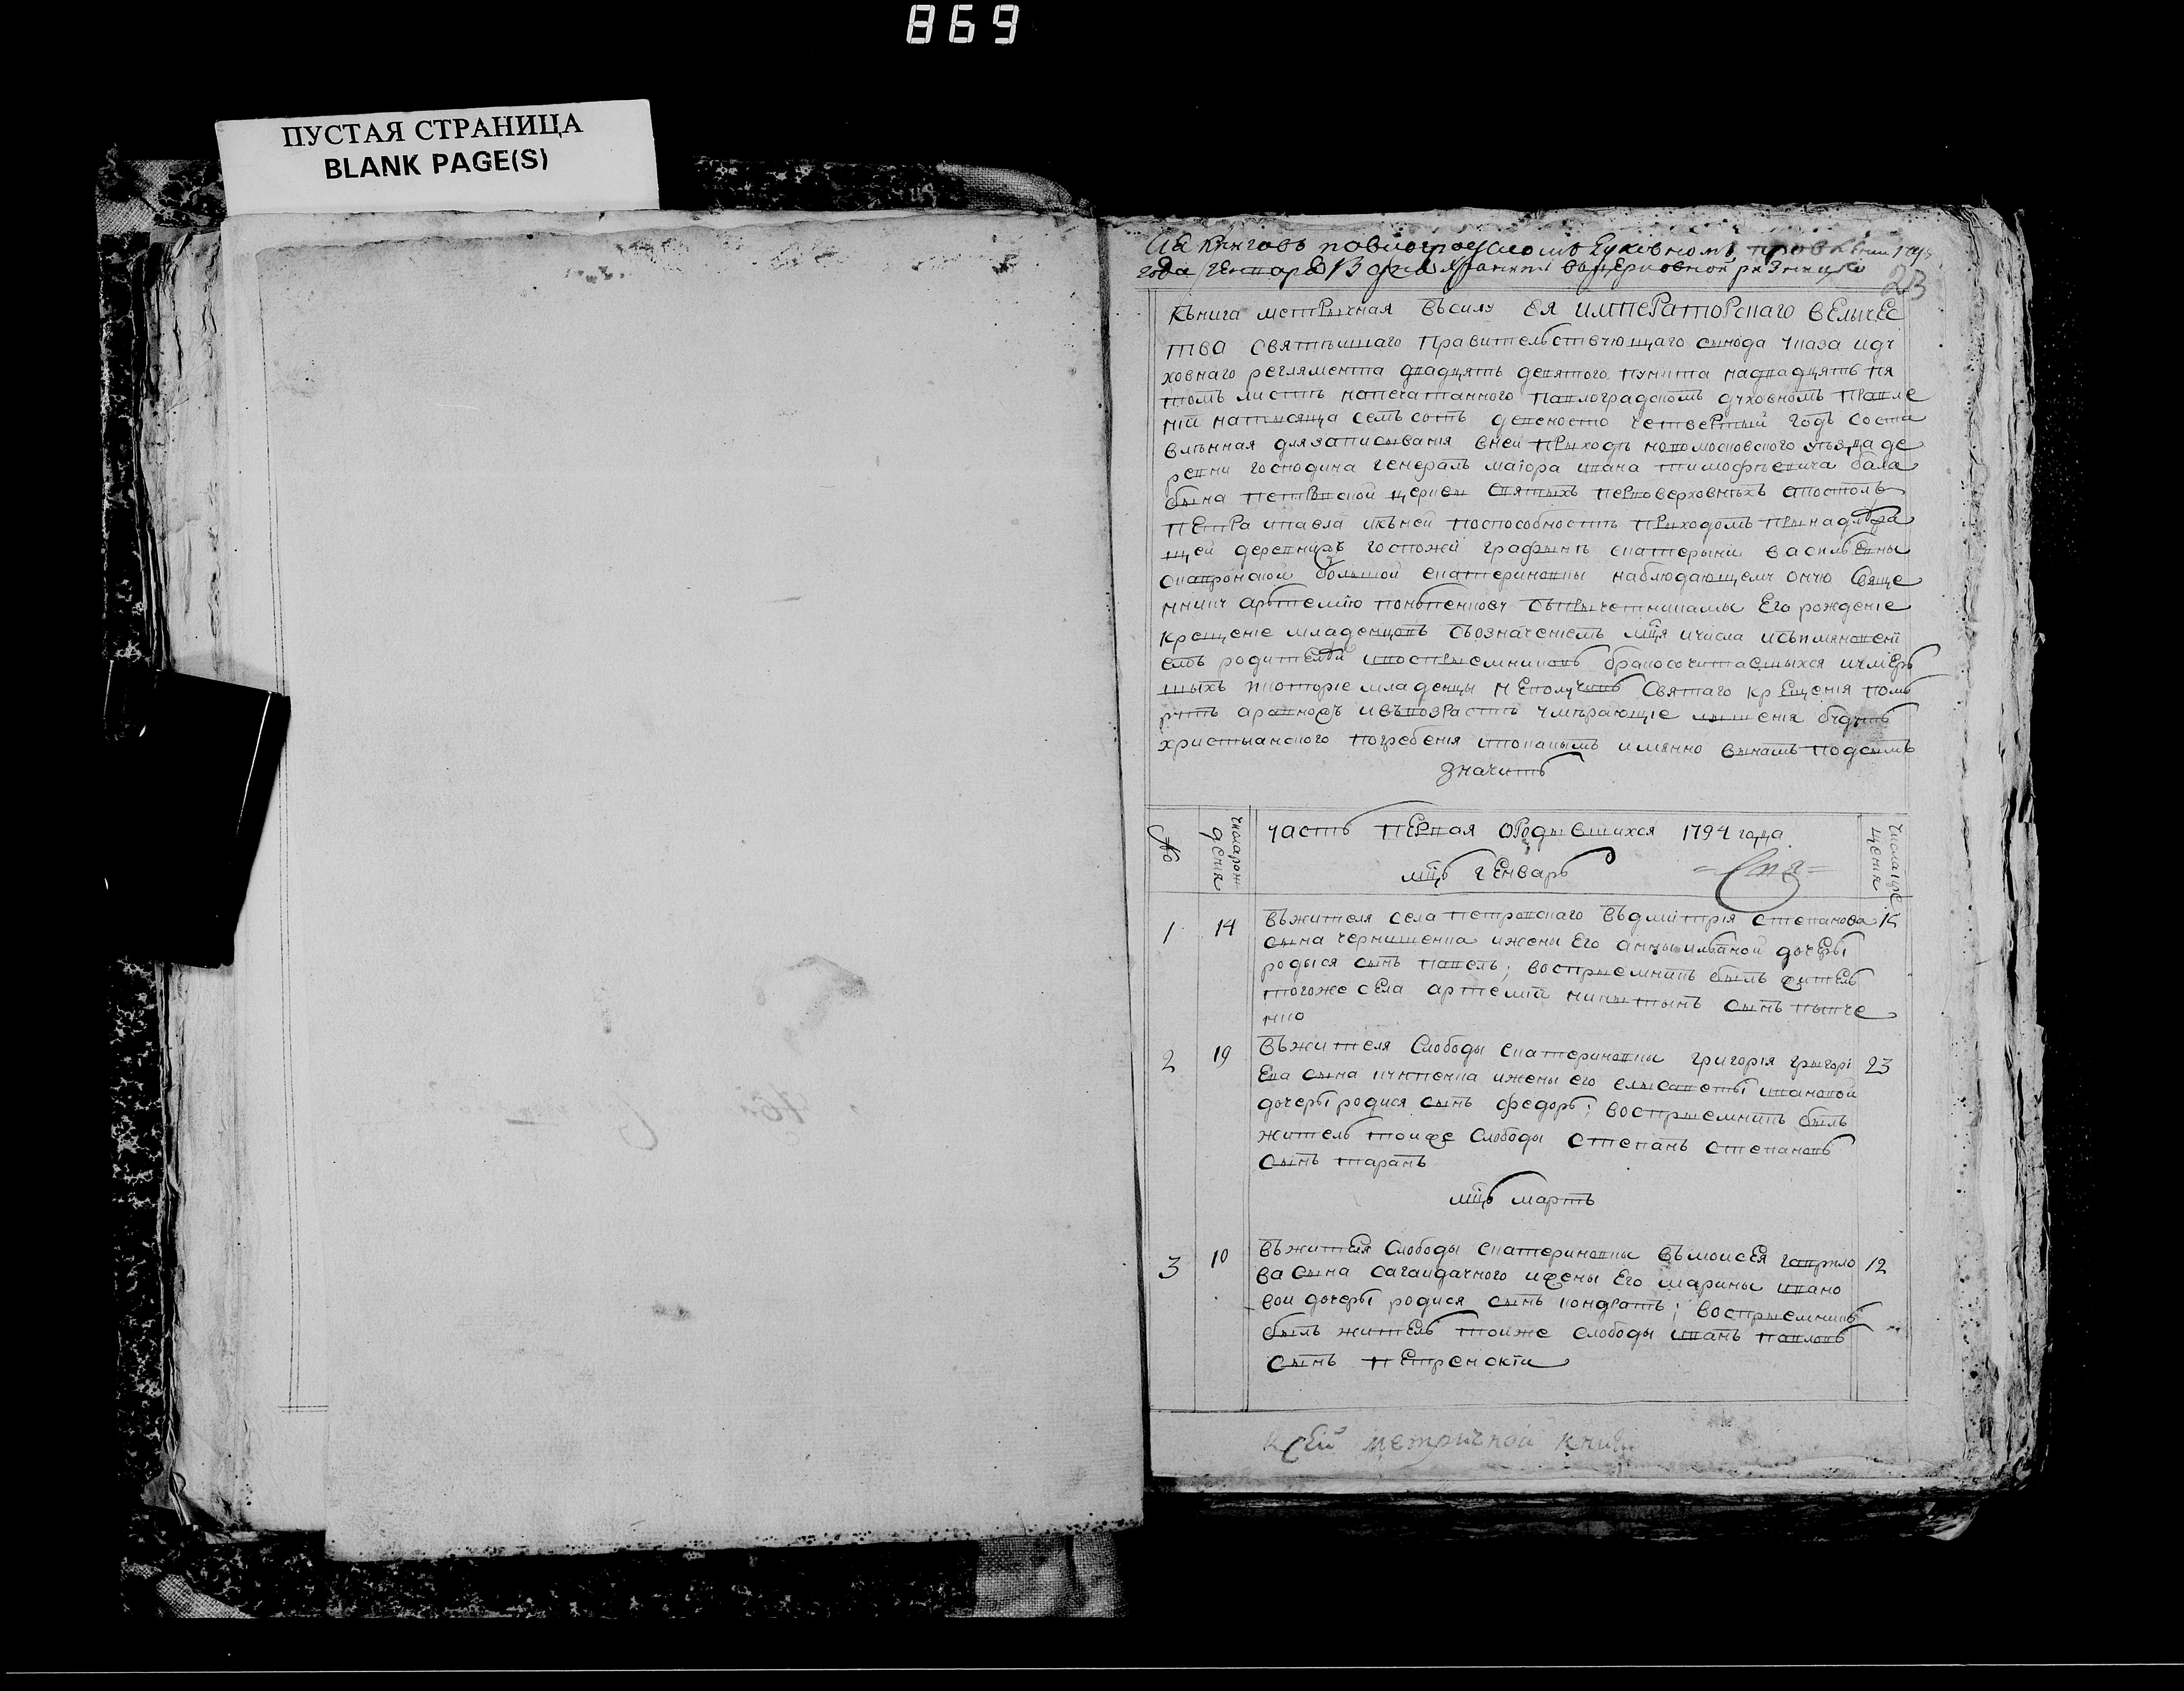 869
ПУСТАЯ СТРАНИЦА
BLANK PAGE(S)
духовномъ
года генваря 13 дня хранить въ церковной ризницѣ
23
Кънига метрычная въ силу ея императорскаго велычес
тва святѣишаго правителствующаго сынода указа и ду
ховнаго регламента двадцять девятого пункта на двадцять пя
томъ листѣ напечатанного павлоградскомъ духовномъ правле
ніи на тысяща семъ сотъ девеносто четвертый годъ соста
влѣнная для записыванія вней прыходъ новомосковского уѣзда де
ревни господина генералъ маіора ивана тимофѣевича бала
бына петровской церкви святыхъ первоверховныхъ апостолъ
петра и павла и къ ней поспособностѣ прыходомъ прынадлѣжа
щей деревнѣ госпожи графынѣ екатерыни василѣвны
скавронской большой екатериновки наблюдающему оную свяще
ннику артемію съ прычетныкамы его рожденіе
крещеніе младенцовъ съ означеніемъ мця и числа и съ имянованi
емъ родителѣй и воспрыемниковъ бракосочитаемыхся и умерь
шыхъ и которіе младенцы неполучывъ святаго крещенія пом
рутъ а равножъ и въ возрастѣ умѣрающіе лышенія будутъ
христыанского погребенія и по каковымъ имянно вынамъ подсымъ
значитъ
№
число рож
денія
часть первая о родывшихся 1794 года
мцъ генварь
число кре
щенія
1 14 въ жителя села петровскаго въ дмитрія степанова 15
сына чернишенка и жены его анны ильиной дочеры
родыся сынъ павелъ; воспрыемникъ былъ житель
тогоже села артемій никытынъ сынъ
2 19 въ жителя слободы екатериновки григорія грыгорі 23
ева сына и жены его елысаветы ивановой
дочеры родися сынъ федоръ; воспрыемникъ былъ
житель тоиже слободы степанъ степановъ
сынъ таранъ
мцъ мартъ
3 10 въ жителя слободы екатериновки въ моисея гаврило 12
ва сына сагаидачного и жены его марины ивано
вои дочеры родися сынъ кондратъ; воспрыемникъ
былъ житель тоиже слободы иванъ павловъ
сынъ
к сей метричной книги